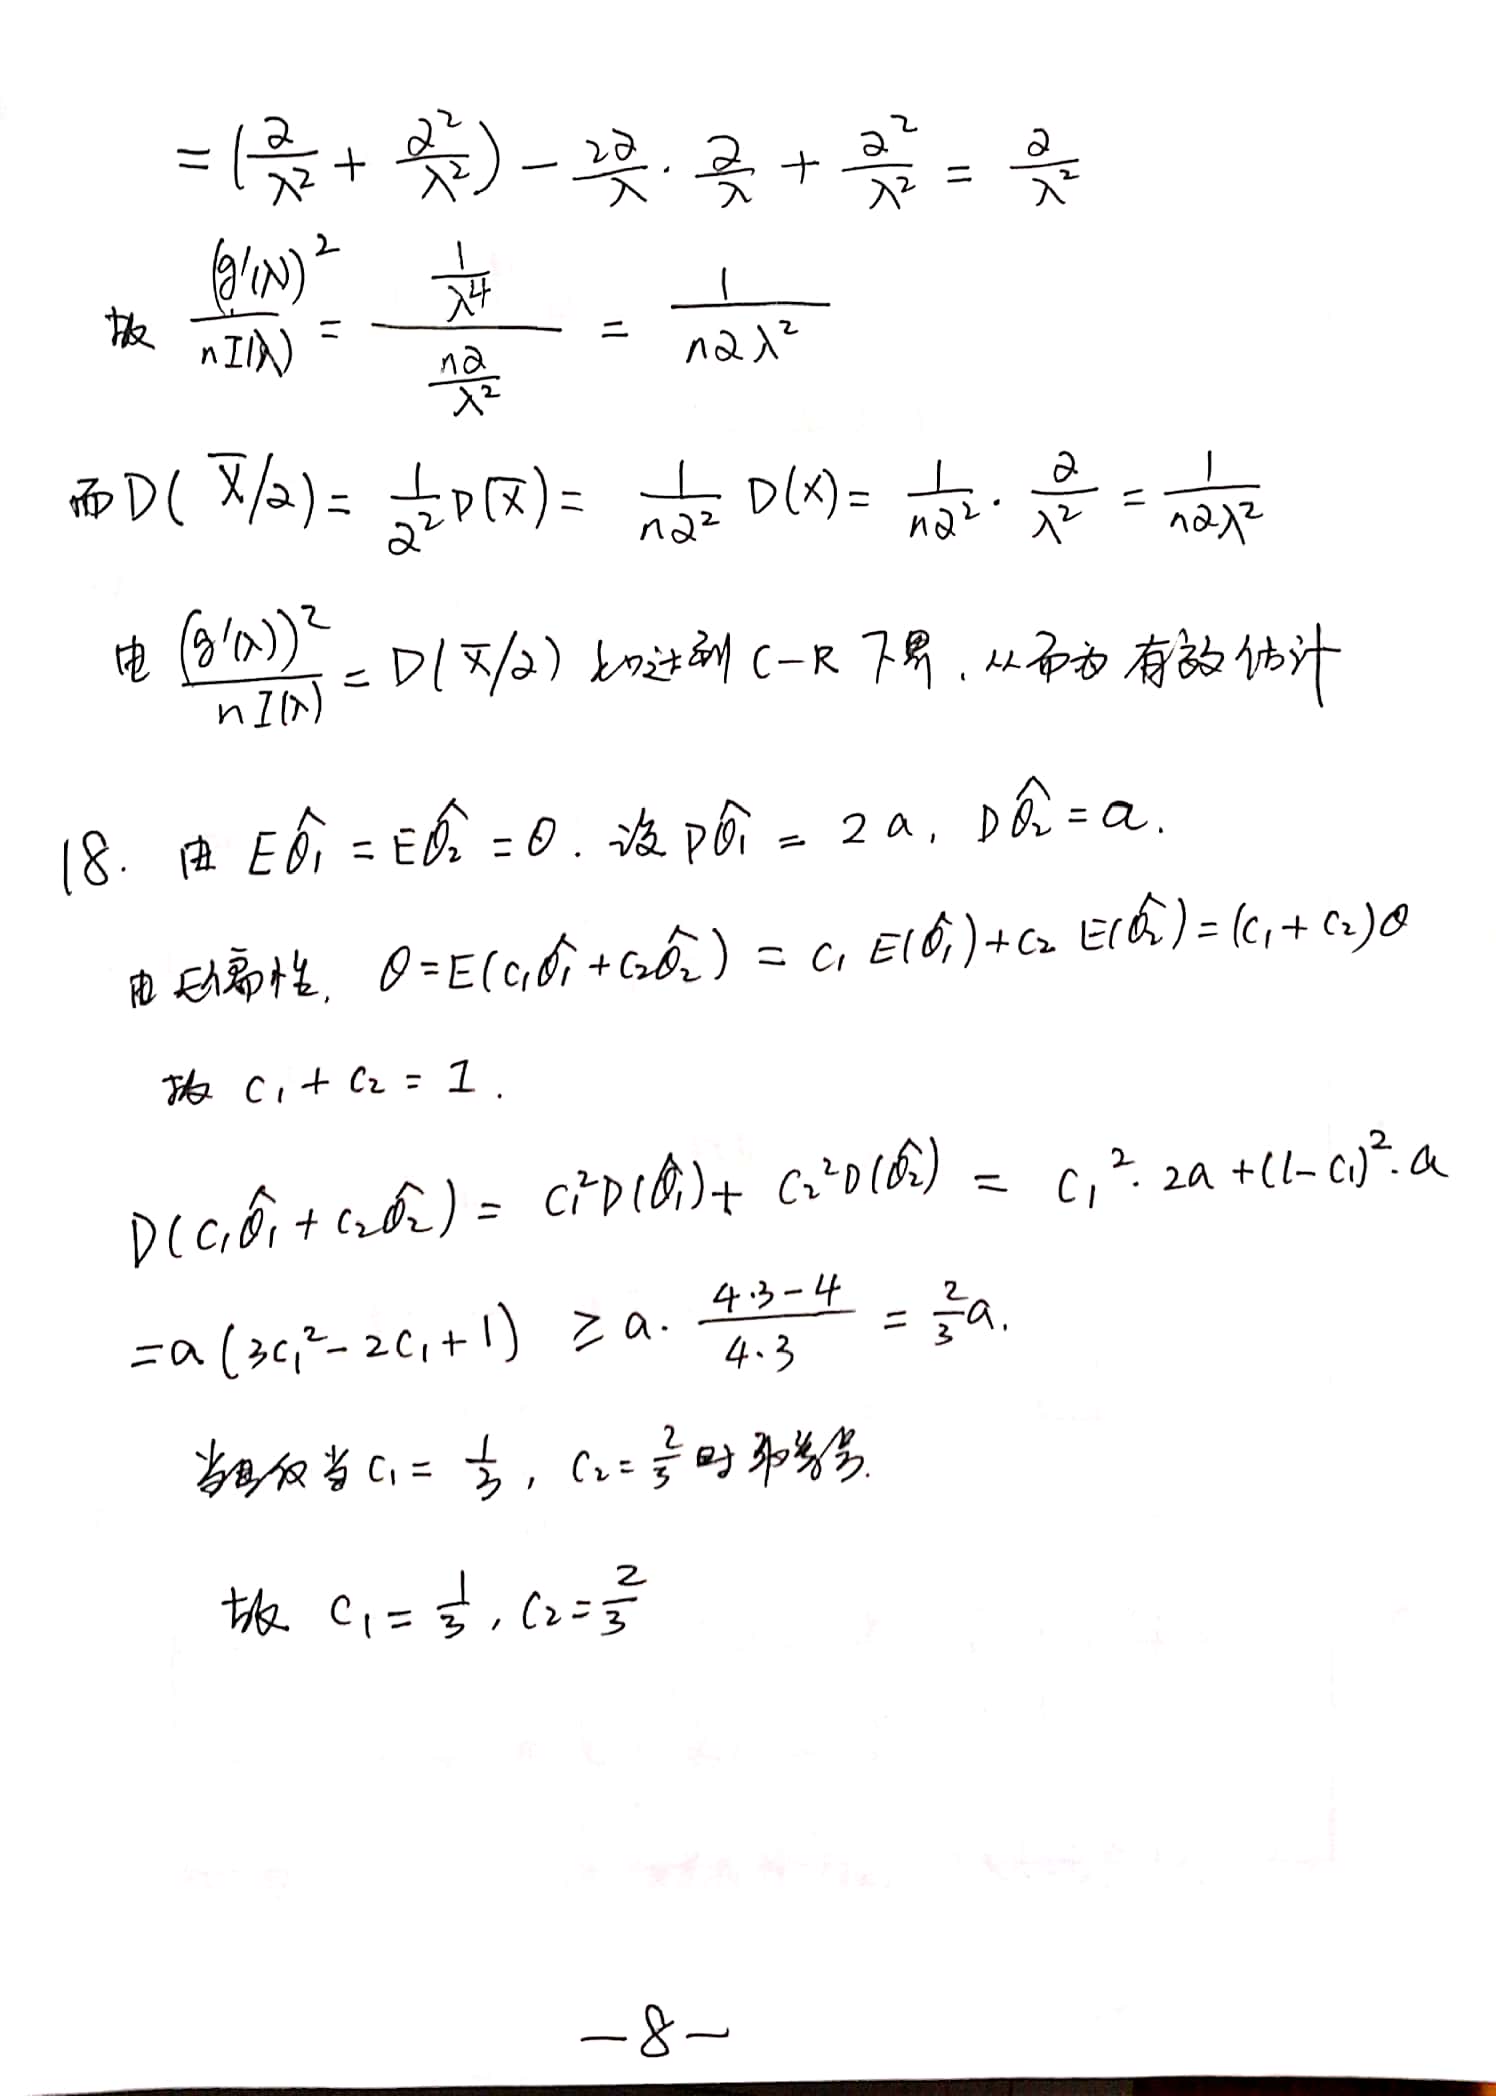 = (α/λ² + α²/λ²) − 2α/λ · α/λ + α²/λ² = α/λ²
故 (g′(λ))²/(nI(λ)) = (1/λ⁴)/(nα/λ²) = 1/(nαλ²)
而 D(X̄/α) = 1/α² D(X̄) = 1/(nα²) D(X) = 1/(nα²) · α/λ² = 1/(nαλ²)
由 (g′(λ))²/(nI(λ)) = D(X̄/α) 知达到 C-R 下界, 从而为有效估计
18. 由 Eθ̂₁ = Eθ̂₂ = θ. 设 Dθ̂₁ = 2a, Dθ̂₂ = a.
由无偏性, θ = E(c₁θ̂₁ + c₂θ̂₂) = c₁E(θ̂₁) + c₂E(θ̂₂) = (c₁ + c₂)θ
故 c₁ + c₂ = 1.
D(c₁θ̂₁ + c₂θ̂₂) = c₁²D(θ̂₁) + c₂²D(θ̂₂) = c₁² · 2a + (1 − c₁)² · a
= a(3c₁² − 2c₁ + 1) ≥ a · (4·3 − 4)/(4·3) = 2/3 a.
当且仅当 c₁ = 1/3, c₂ = 2/3 时取等号.
故 c₁ = 1/3, c₂ = 2/3
−8−